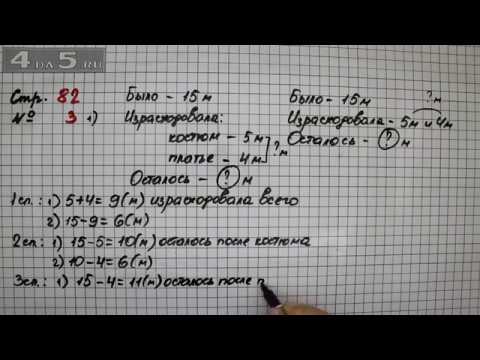 4DA5.RU
Стр. 82
№ 3 1)
Было - 15 м
Израсходовала:
костюм - 5 м
платье - 4 м
? м
Осталось - ? м
? м
Было - 15 м
Израсходовала - 5 м и 4 м
Осталось - ? м
1 сп.: 1) 5+4= 9(м) израсходовала всего
2) 15-9= 6(м)
2 сп.: 1) 15-5= 10(м) осталось после костюма
2) 10-4= 6(м)
3 сп.: 1) 15-4= 11(м) осталось после п